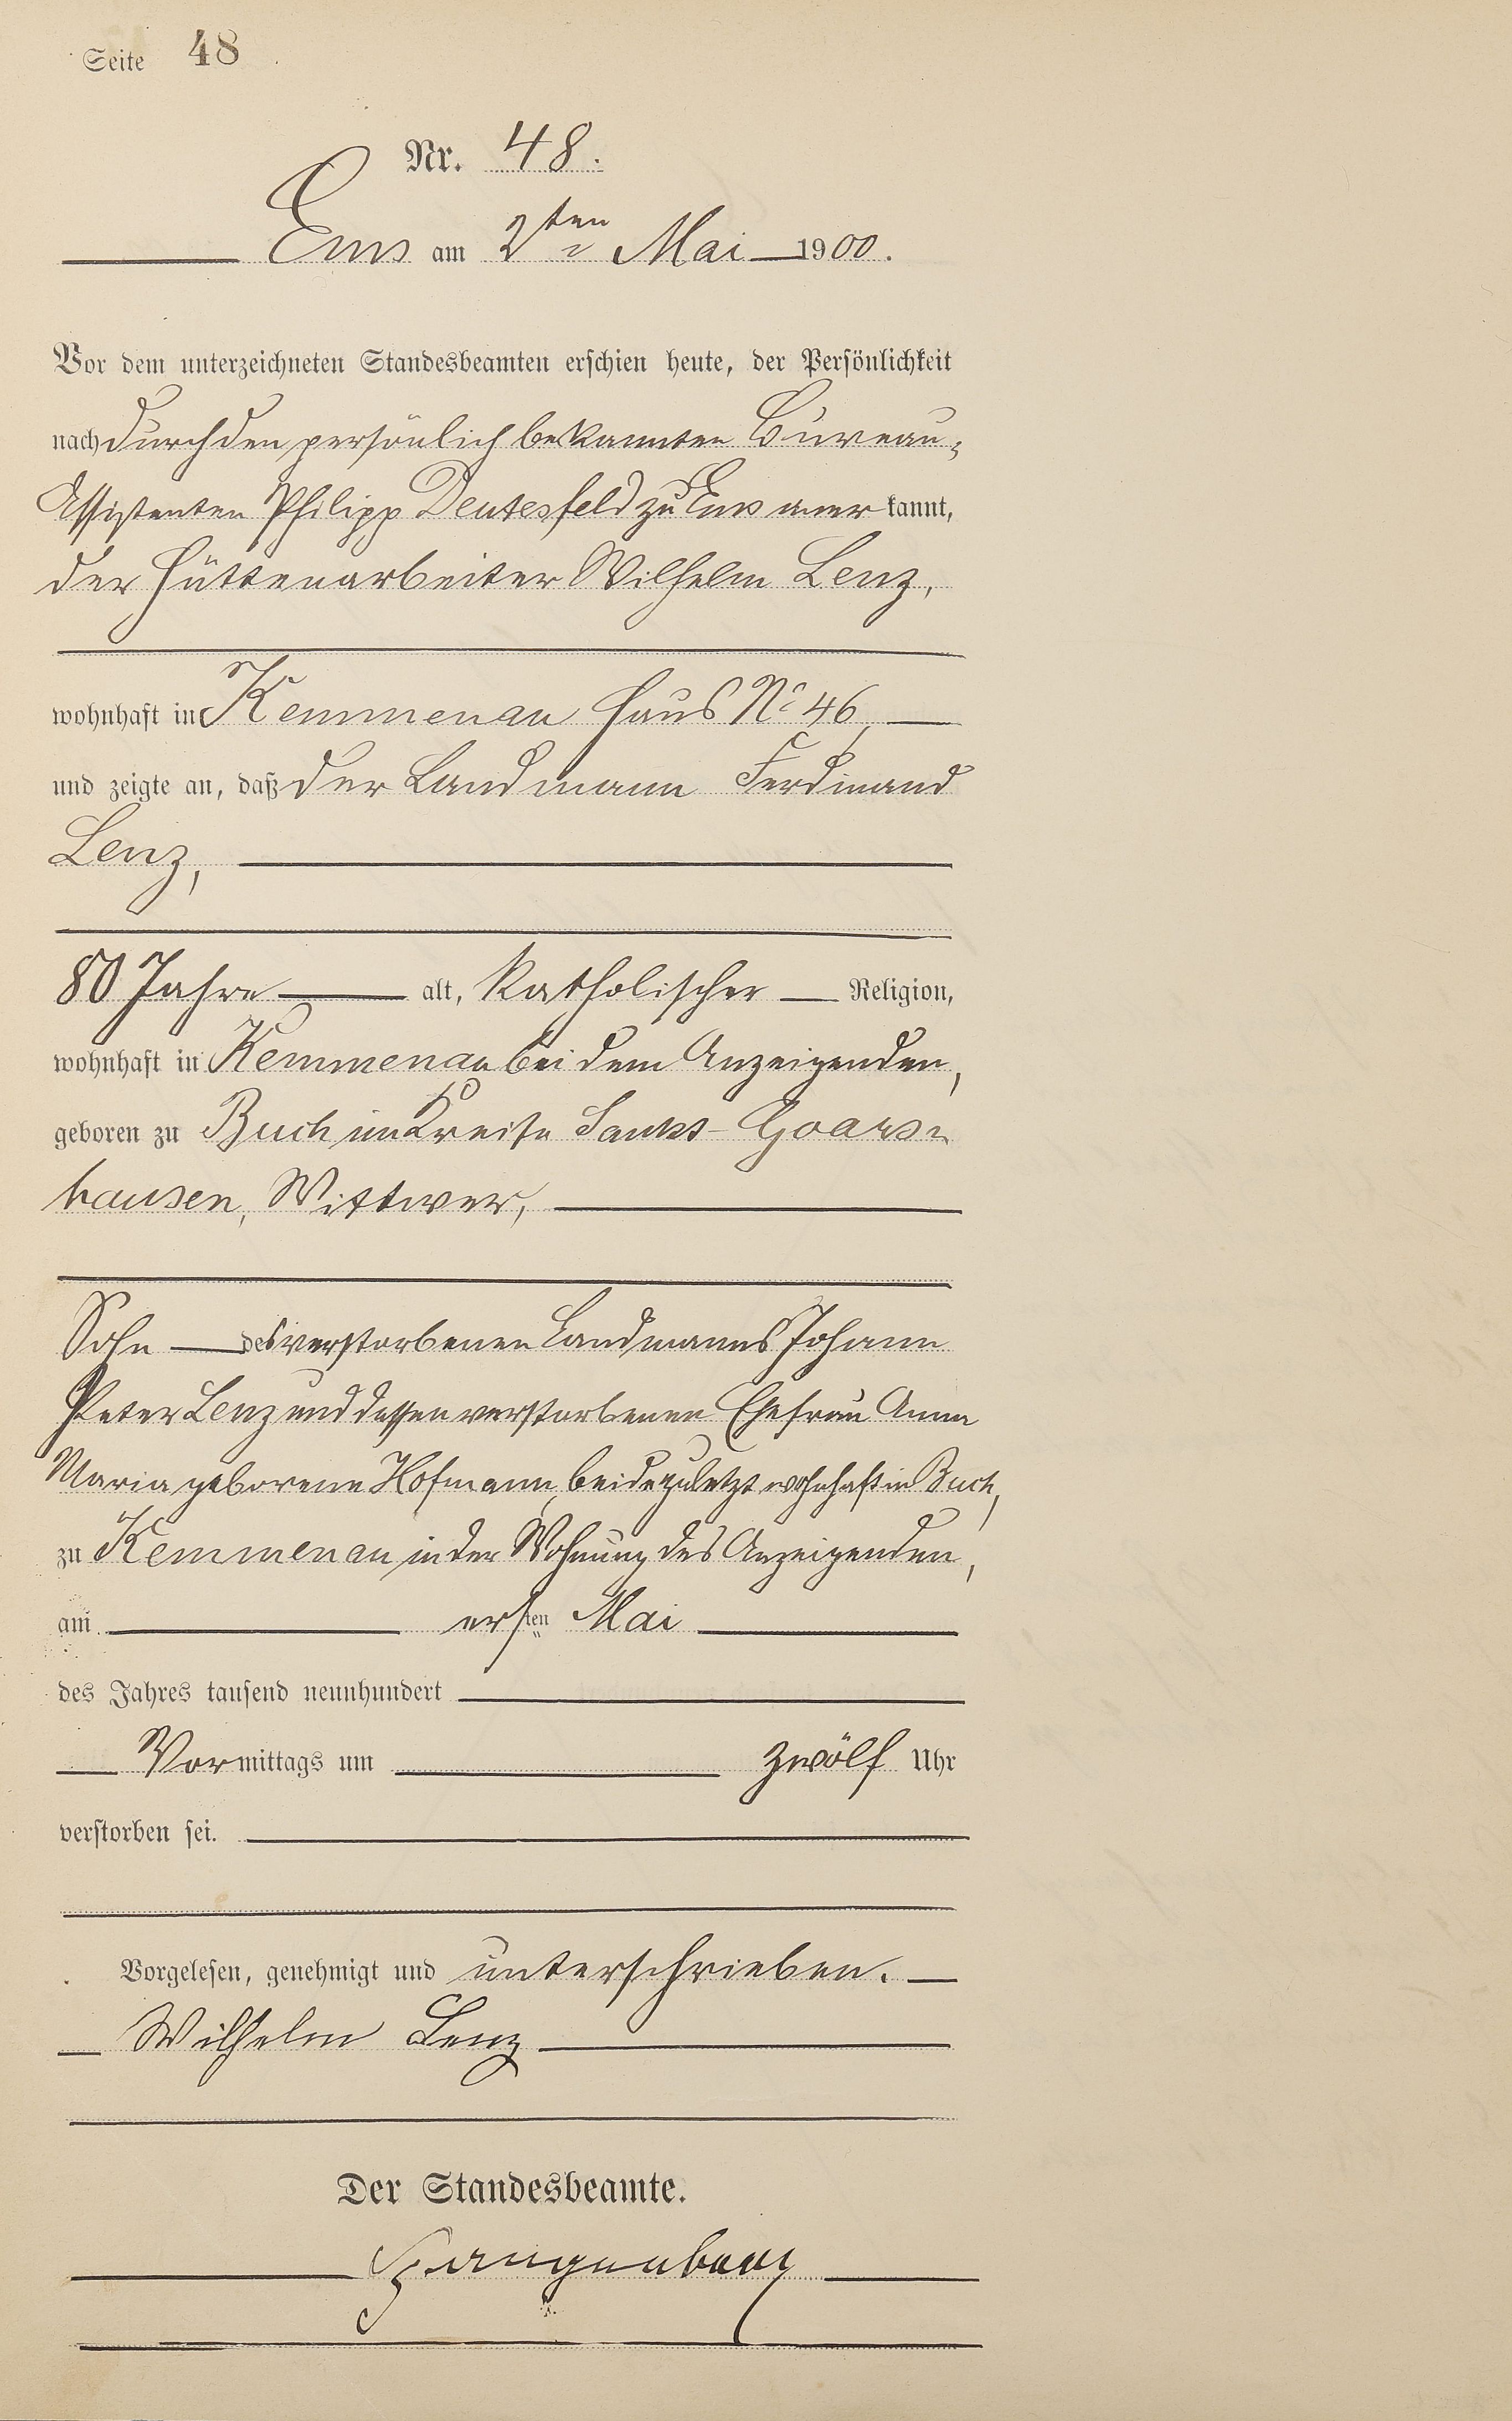 Seite 48
Nr. 48.
Ems am 2ten Mai 1900.
Vor dem unterzeichneten Standesbeamten erschien heute, der Persönlichkeit
nach durch den persönlich bekannten Bureau-
Assistenten Philipp Deutesfeld zu Ems aner kannt,
der Hüttenarbeiter Wilhelm Lenz,
wohnhaft in Kemmenau Haus No 46,
und zeigte an, daß der Landmann Ferdinand
Lenz,
80 Jahre alt, katholischer Religion,
wohnhaft in Kemmenau bei dem Anzeigenden,
geboren zu Buch im Kreise Sankt-Goars-
hausen, Wittwer,
Sohn des verstorbenen Landmanns Johann
Peter Lenz und dessen verstorbenen Ehefrau Anna
Maria geborene Hofmann, beide zuletzt wohnhaft in Buch,
zu Kemmenau in der Wohnung des Anzeigenden,
am ersten Mai
des Jahres tausend neunhundert
Vormittags um zwölf Uhr
verstorben sei.
Vorgelesen, genehmigt und unterschrieben.
Wilhelm Lenz
Der Standesbeamte.